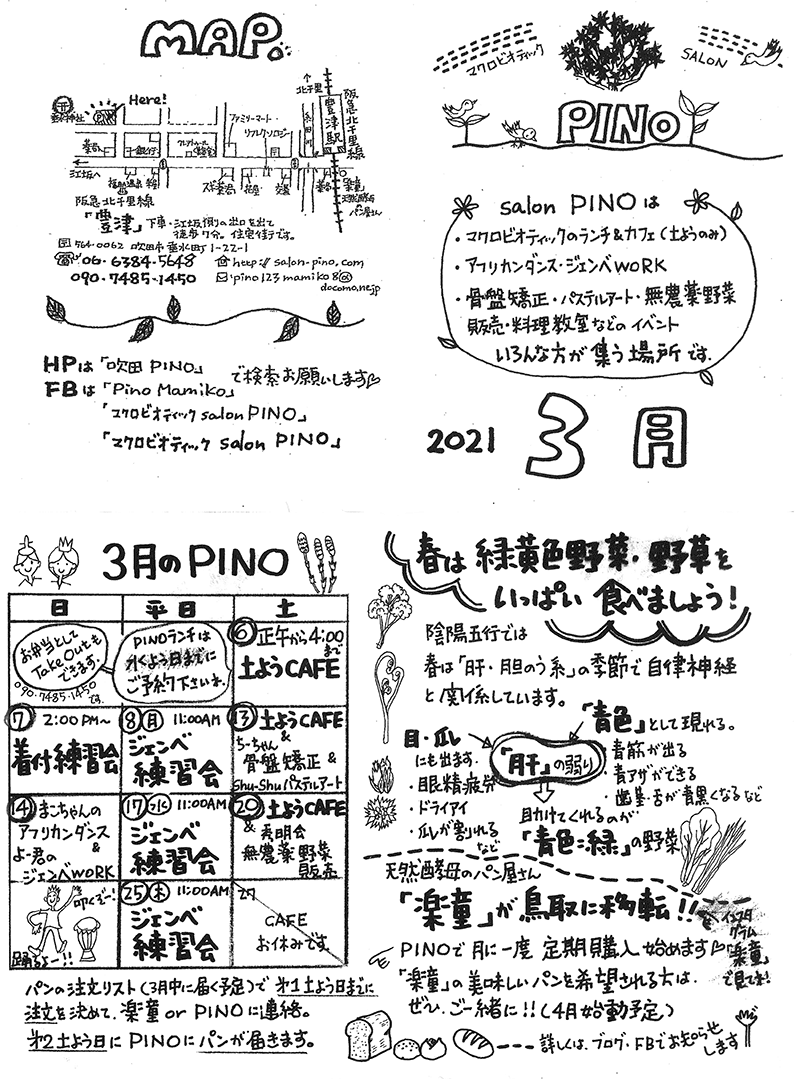 MAP.
Here!
北千里
阪急北千里線
豊津駅
糸田川
ファミリーマート
リフレクソロジー
垂水神社
PINO
薬局
銀行
江坂へ
阪急北千里線
スギ薬局
花屋
交番
薬局
「楽童」
天然酵母
パン屋さん
「豊津」下車・江坂側の出口を出て
徒歩7分。住宅街です。
〒564-0062 吹田市垂水町1-22-1
☎06・6384・5648
http://salon-pino.com
090・7485・1450
✉pino123mamiko8@
docomo.ne.jp
HPは「吹田 PINO」
FBは「Pino Mamiko」
で検索お願いします
「マクロビオティック salon PINO」
「マクロビオティック salon PINO」
マクロビオティック
SALON
PINO
salon PINOは
・マクロビオティックのランチ&カフェ(土ようのみ)
・アフリカンダンス・ジェンベWORK
・骨盤矯正・パステルアート・無農薬野菜
販売・料理教室などのイベント
いろんな方が集う場所です。
2021 3月
3月のPINO
日 平日 土
お弁当として
Take Outも
できます。
090・7485・1450
です。
PINOランチは
水よう日までに
ご予約下さいね。
⑥正午から4:00
まで
土ようCAFE
⑦ 2:00PM~
着付練習会
⑧(月) 11:00AM
ジェンベ
練習会
⑬土ようCAFE
&
ちーちゃん
骨盤矯正 &
Shu-Shuパステルアート
⑭まこちゃんの
アフリカンダンス
&
よー君の
ジェンベWORK
⑰(水) 11:00AM
ジェンベ
練習会
⑳土ようCAFE
&
秀明会
無農薬野菜
販売
叩くぞー!
踊るよー!!
㉕(木) 11:00AM
ジェンベ
練習会
27
CAFE
お休みです
パンの注文リスト(3月中に届く予定)で 第1土よう日までに
注文を決めて、楽童 or PINOに連絡。
第2土よう日にPINOにパンが届きます。
春は 緑黄色野菜・野草を
いっぱい 食べましょう!
陰陽五行では
春は「肝・胆のう系」の季節で自律神経
と関係しています。
目・爪
にも出ます。
・眼精疲労
・ドライアイ
・爪が割れる
など
「肝」の弱り
「青色」として現れる。
・青筋が出る
・青アザができる
・歯茎・舌が青黒くなるなど
助けてくれるのが
「青色=緑」の野菜
天然酵母のパン屋さん
「楽童」が鳥取に移転!!
インスタ
グラム
「楽童」
で見てネ!
PINOで月に一度 定期購入 始めます
「楽童」の美味しいパンを希望される方は、
ぜひ、ご一緒に!!(4月始動予定)
詳しくは、ブログ・FBでお知らせ
します